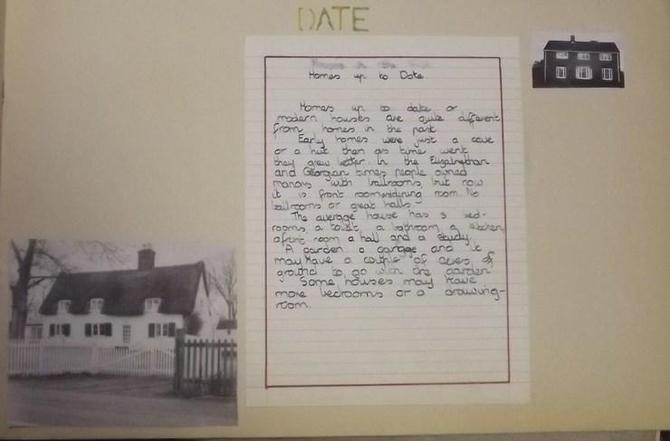 DATE
Homes up to Date
Homes up to date or
modern houses are quite different
from homes in the past
Early homes were just a cave
or a hut then as time went
they grew better. In the Elizabethan
and Georgian times people owned
manors with ballrooms, but now
it is front room dining room. No
ballrooms or great halls
The average house has 3 bed-
rooms, a toilet, a bathroom, a kitchen,
a front room a hall and a study.
A garden a garage and it
may have a couple of acres, of
ground to go with the garden
Some houses may have
more bedrooms or a drawing-
room.